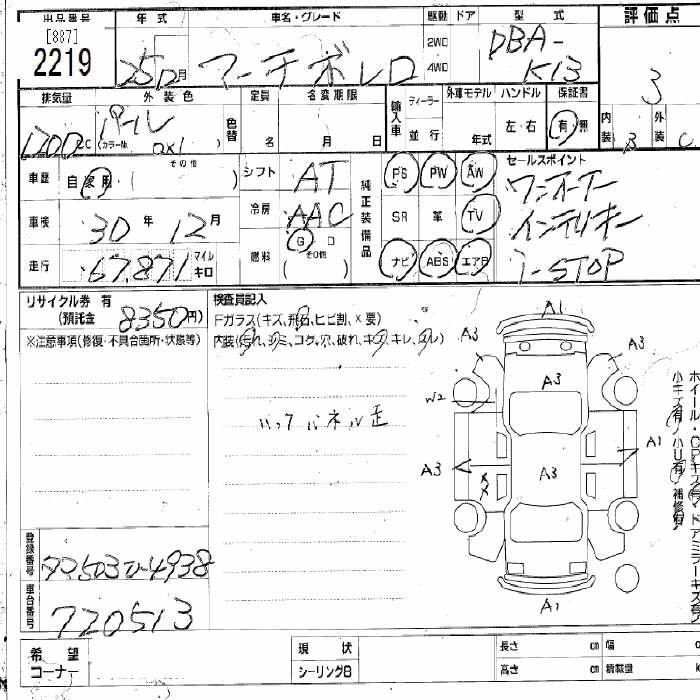 出品番号 年式 車名・グレード 駆動 ドア 型式 評価点
[887]
2219 25 12月 マーチボレロ 2WD 4WD DBA-K13 3
排気量 外装色 定員 名変期限 輸入車 ディーラー 外車モデル ハンドル 保証書 内装 外装
1200CC パール (カラー№ QX1 色替 名 月 日 並行 年式 左・右 有・無 B C
車歴 自家用・( その他 ) シフト AT 純正装備品 PS PW AW セールスポイント
車検 30年 12月 冷房 AAC SR 革 TV ワンオーナー
インテリキー
走行 67,871 マイル キロ 燃料 G D (その他) ナビ ABS エアB i-STOP
リサイクル券 有
(預託金 8350円)
検査員記入
Fガラス(キズ、飛石、ヒビ割、×要)
※注意事項(修復・不具合箇所・状態等)
内装(汚れ、シミ、コゲ、穴、破れ、キズ、キレ、スレ)
バックパネル歪
A1
A3 A3
A3
W2
A1
A3 A3
××
A1
ホイール・CPキズ有
ドアミラーキズ有
小キズ有 ハリ有 補修有
登録番号 4938
車台番号 720513
希望コーナー
現状
シーリングB
長さ cm 幅 c
高さ cm 積載量 k